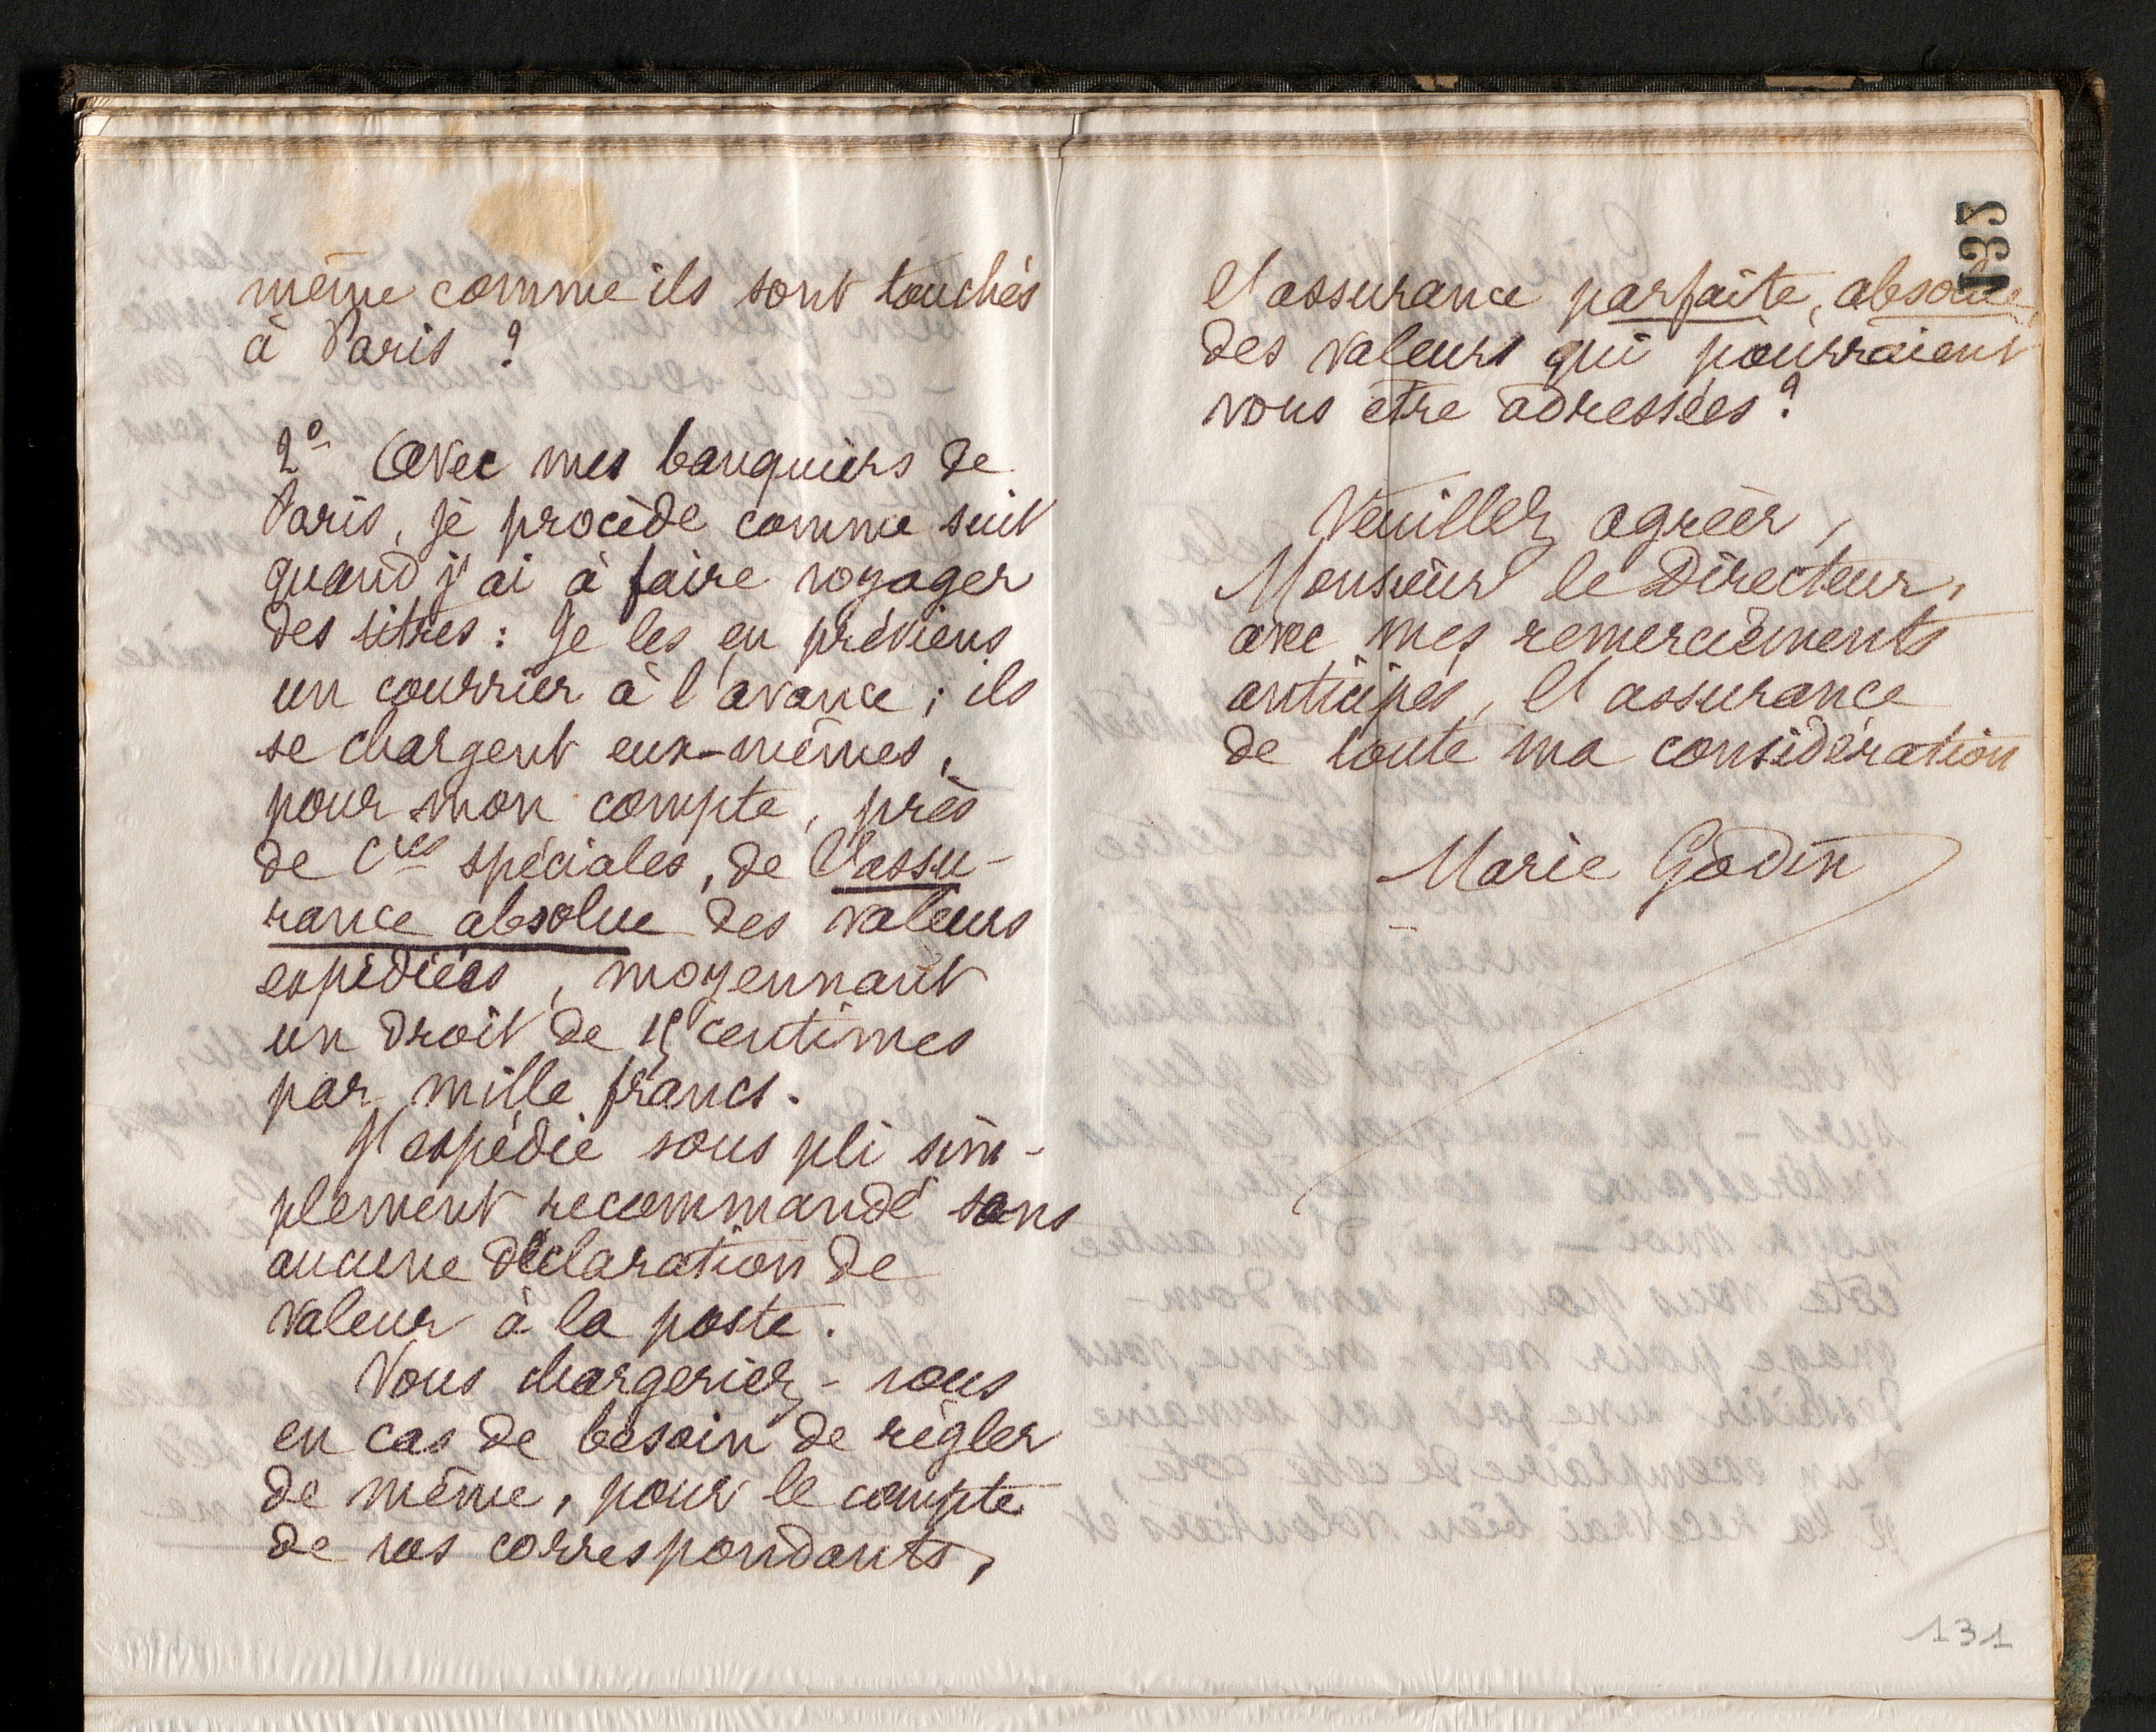 même comme ils sont touchés
à Paris ?
2° Avec mes banquiers de
Paris, je procède comme suit
quand j'ai à faire voyager
des titres : Je les en préviens
un courrier à l'avance ; ils
se chargent eux-mêmes,
pour mon compte, près
de Cies spéciales, de l'assu-
rance absolue des valeurs
expédiées, moyennant
un droit de 15 centimes
par mille francs.
J'expédie sous pli sim-
plement recommandé sans
aucune déclaration de
valeur à la poste.
Vous chargeriez-vous
en cas de besoin de règler
de même, pour le compte
de vos correspondants,
135
l'assurance parfaite, absolue
des valeurs qui pourraient
vous être adressées ?
Veuillez agréer,
Monsieur le Directeur,
avec mes remerciements
anticipés, l'assurance
de toute ma considération
Marie Godin
131